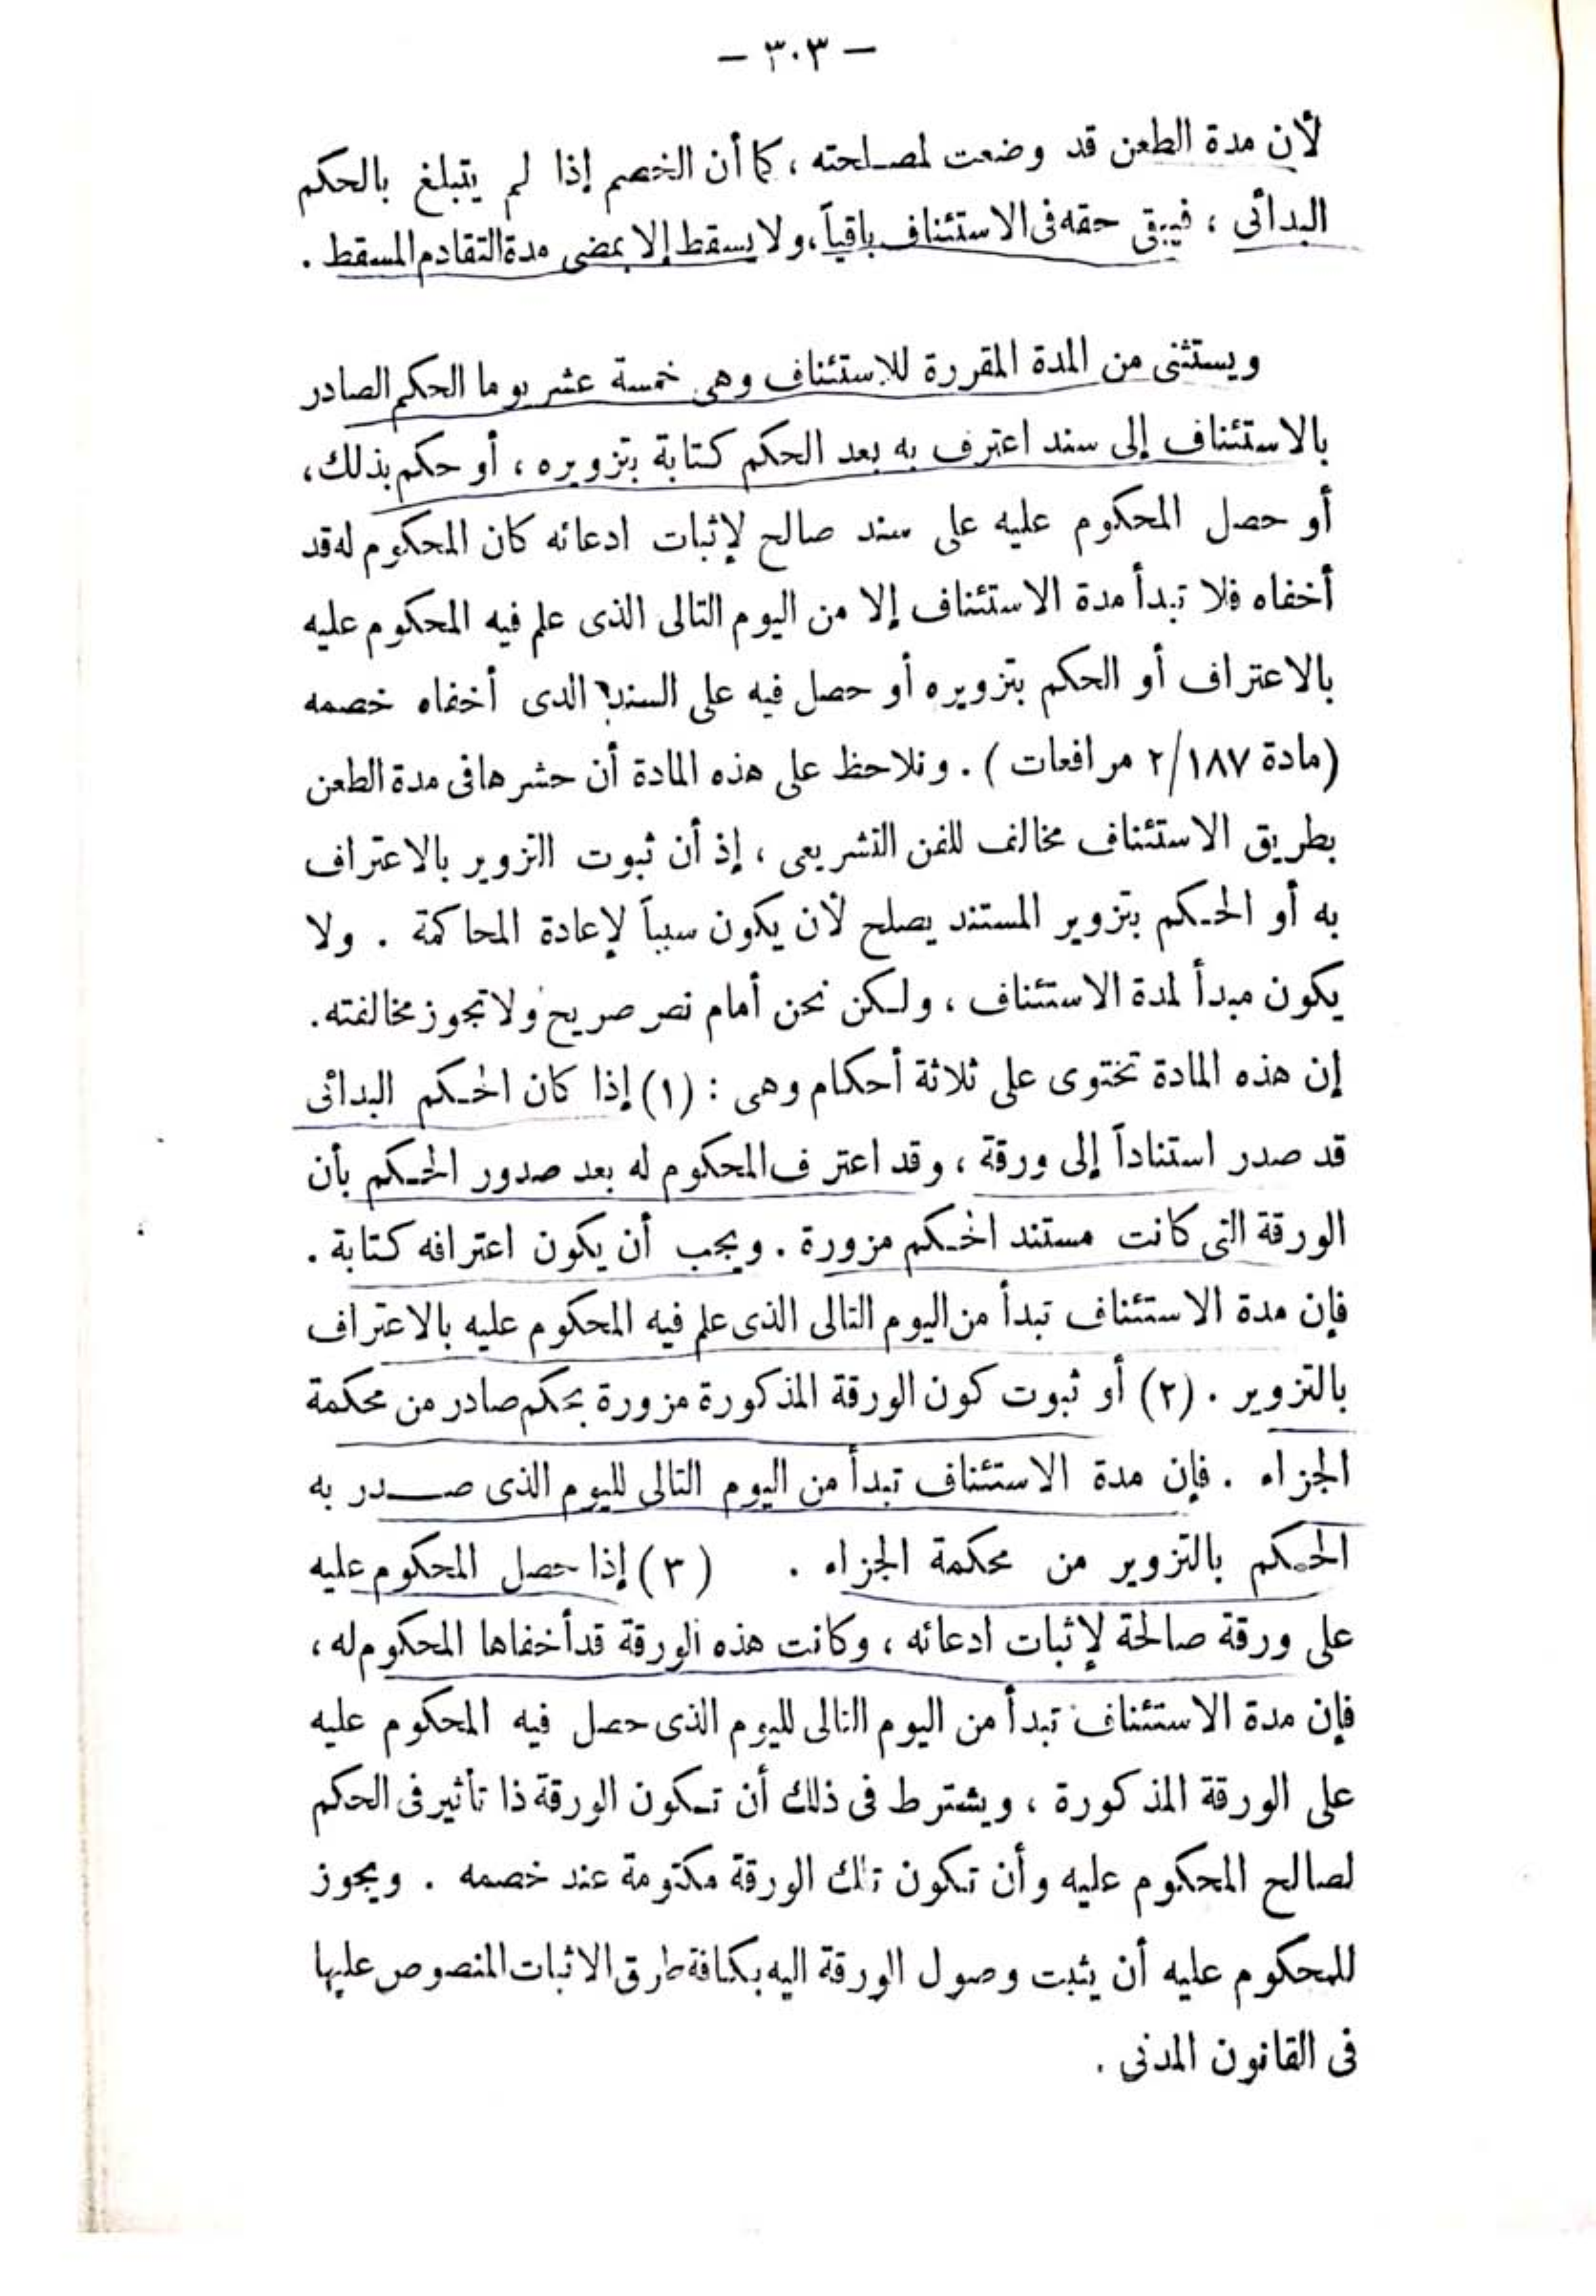 – ٣٠٣ –
لأن مدة الطعن قد وضعت لمصلحته ، كما أن الخصم إذا لم يتبلغ بالحكم
البدائى ، فيبقى حقه فى الاستئناف باقياً ، ولا يسقط إلا بمضى مدة التقادم المسقط .
ويستثنى من المدة المقررة للاستئناف وهى خمسة عشر يوما الحكم الصادر
بالاستئناف إلى سند اعترف به بعد الحكم كتابة بتزويره ، أو حكم بذلك ،
أو حصل المحكوم عليه على سند صالح لإثبات ادعائه كان المحكوم له قد
أخفاه فلا تبدأ مدة الاستئناف إلا من اليوم التالى الذى علم فيه المحكوم عليه
بالاعتراف أو الحكم بتزويره أو حصل فيه على السند الدى أخفاه خصمه
(مادة ٢/١٨٧ مرافعات ) . ونلاحظ على هذه المادة أن حشرها فى مدة الطعن
بطريق الاستئناف مخالف للفن التشريعى ، إذ أن ثبوت التزوير بالاعتراف
به أو الحكم بتزوير المستند يصلح لأن يكون سبباً لإعادة المحاكمة . ولا
يكون مبدأ لمدة الاستئناف ، ولكن نحن أمام نص صريح ولا تجوز مخالفته .
إن هذه المادة تحتوى على ثلاثة أحكام وهى : (١) إذا كان الحكم البدائى
قد صدر استناداً إلى ورقة ، وقد اعترف المحكوم له بعد صدور الحكم بأن
الورقة التى كانت مستند الحكم مزورة . ويجب أن يكون اعترافه كتابة .
فإن مدة الاستئناف تبدأ من اليوم التالى الذى علم فيه المحكوم عليه بالاعتراف
بالتزوير . (٢) أو ثبوت كون الورقة المذكورة مزورة بحكم صادر من محكمة
الجزاء . فإن مدة الاستئناف تبدأ من اليوم التالى لليوم الذى صدر به
الحكم بالتزوير من محكمة الجزاء . (٣) إذا حصل المحكوم عليه
على ورقة صالحة لإثبات ادعائه ، وكانت هذه الورقة قد أخفاها المحكوم له ،
فإن مدة الاستئناف تبدأ من اليوم التالى لليوم الذى حصل فيه المحكوم عليه
على الورقة المذكورة ، ويشترط فى ذلك أن تكون الورقة ذا تأثير فى الحكم
لصالح المحكوم عليه وأن تكون تلك الورقة مكتومة عند خصمه . ويجوز
للمحكوم عليه أن يثبت وصول الورقة اليه بكافة طرق الاثبات المنصوص عليها
فى القانون المدنى .